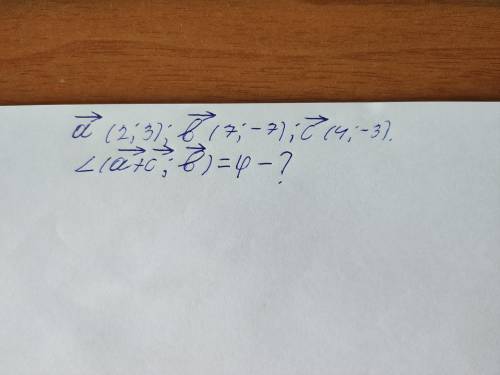 a⃗ (2;3); b⃗ (7;-7); c⃗ (4;-3).
∠(a⃗+c⃗; b⃗)=φ-?